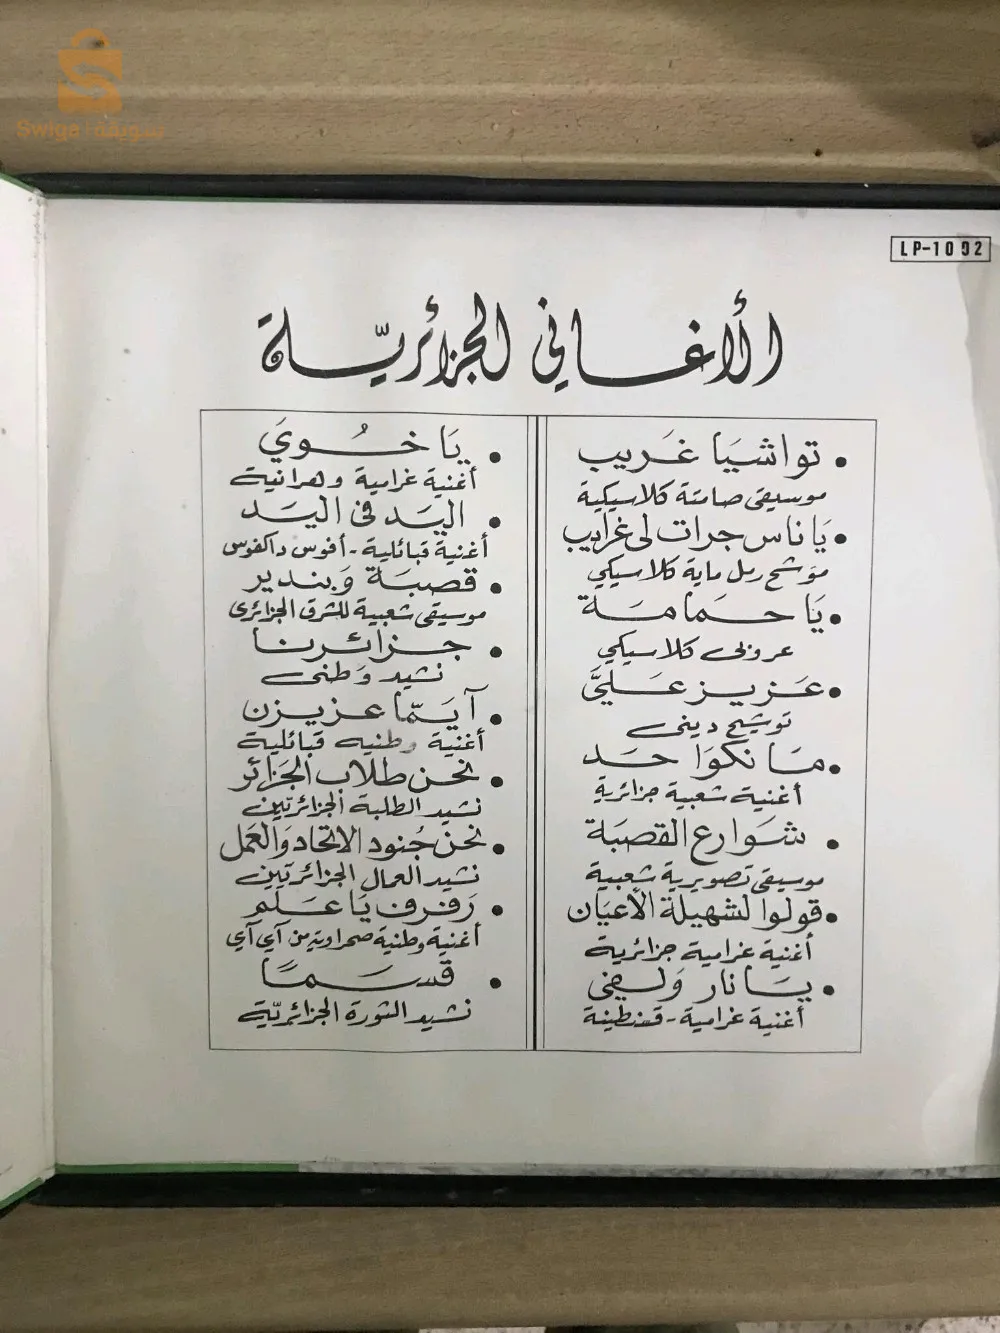 Swiga | سويقة
LP-1002
الأغاني الجزائريّة
• تواشيا غَريب
موسيقى صامتة كلاسيكية
• يَا ناس جرات لى غرايب
موَشح رمل ماية كلاسيكي
• يَا حَمَامَة
عروبى كلاسيكي
• عَزيز عَليَّ
توشيح دينى
• مَا نكوَا حَد
أغنية شعبية جزائرية
• شَوارع القصبَة
موسيقى تصويرية شعبية
• قولوا لشهيلة الأعيَان
أغنية غرامية جزائرية
• يَا نار وَلفى
أغنية غرامية - قسنطينة
• يَا خُويَ
أغنية غرامية وهرانية
• اليَد فى اليَد
أغنية قبائلية - أفوس داكفوس
• قصبَة وَبندير
موسيقى شعبية للشرق الجزائرى
• جزائرنا
نشيد وَطنى
• آيَمّا عزيزن
أغنية وطنيه قبائلية
• نحن طلاب الجَزائر
نشيد الطلبة الجزائريّين
• نحن جُنود الاتحاد وَالعَمل
نشيد العمال الجزائريّين
• رَفرف يَا عَلَم
أغنية وطنية صحراوية من آي آي
• قسَمًا
نشيد الثورة الجزائريّة